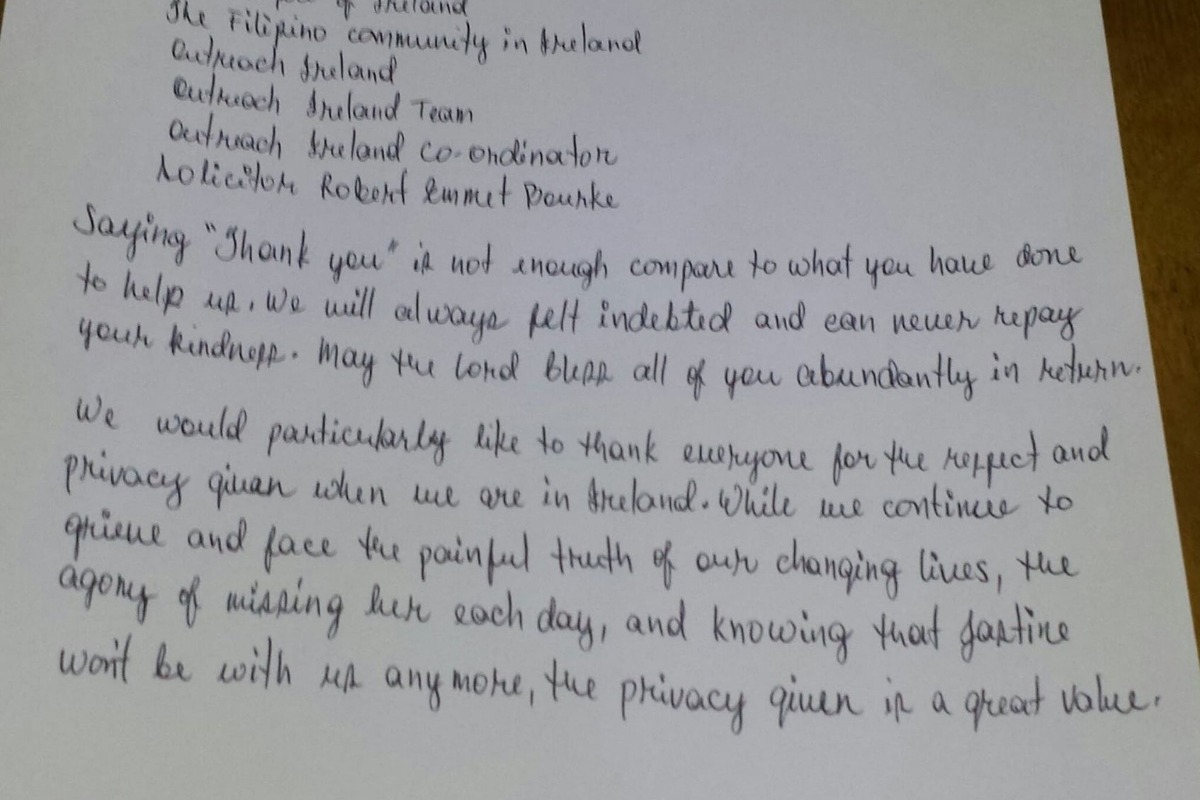 of Ireland
The Filipino community in Ireland
Outreach Ireland
Outreach Ireland Team
Outreach Ireland Co-ordinator
Solicitor Robert Emmet Bourke
Saying "Thank you" is not enough compare to what you have done
to help us. We will always felt indebted and can never repay
your kindness. May the Lord bless all of you abundantly in return.
We would particularly like to thank everyone for the respect and
privacy given when we are in Ireland. While we continue to
grieve and face the painful truth of our changing lives, the
agony of missing her each day, and knowing that Jastine
won't be with us anymore, the privacy given is a great value.